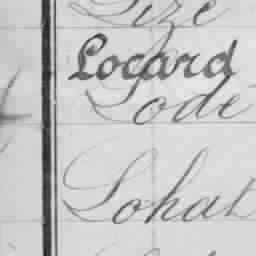 Lize
Locard
Lodé
Lohat